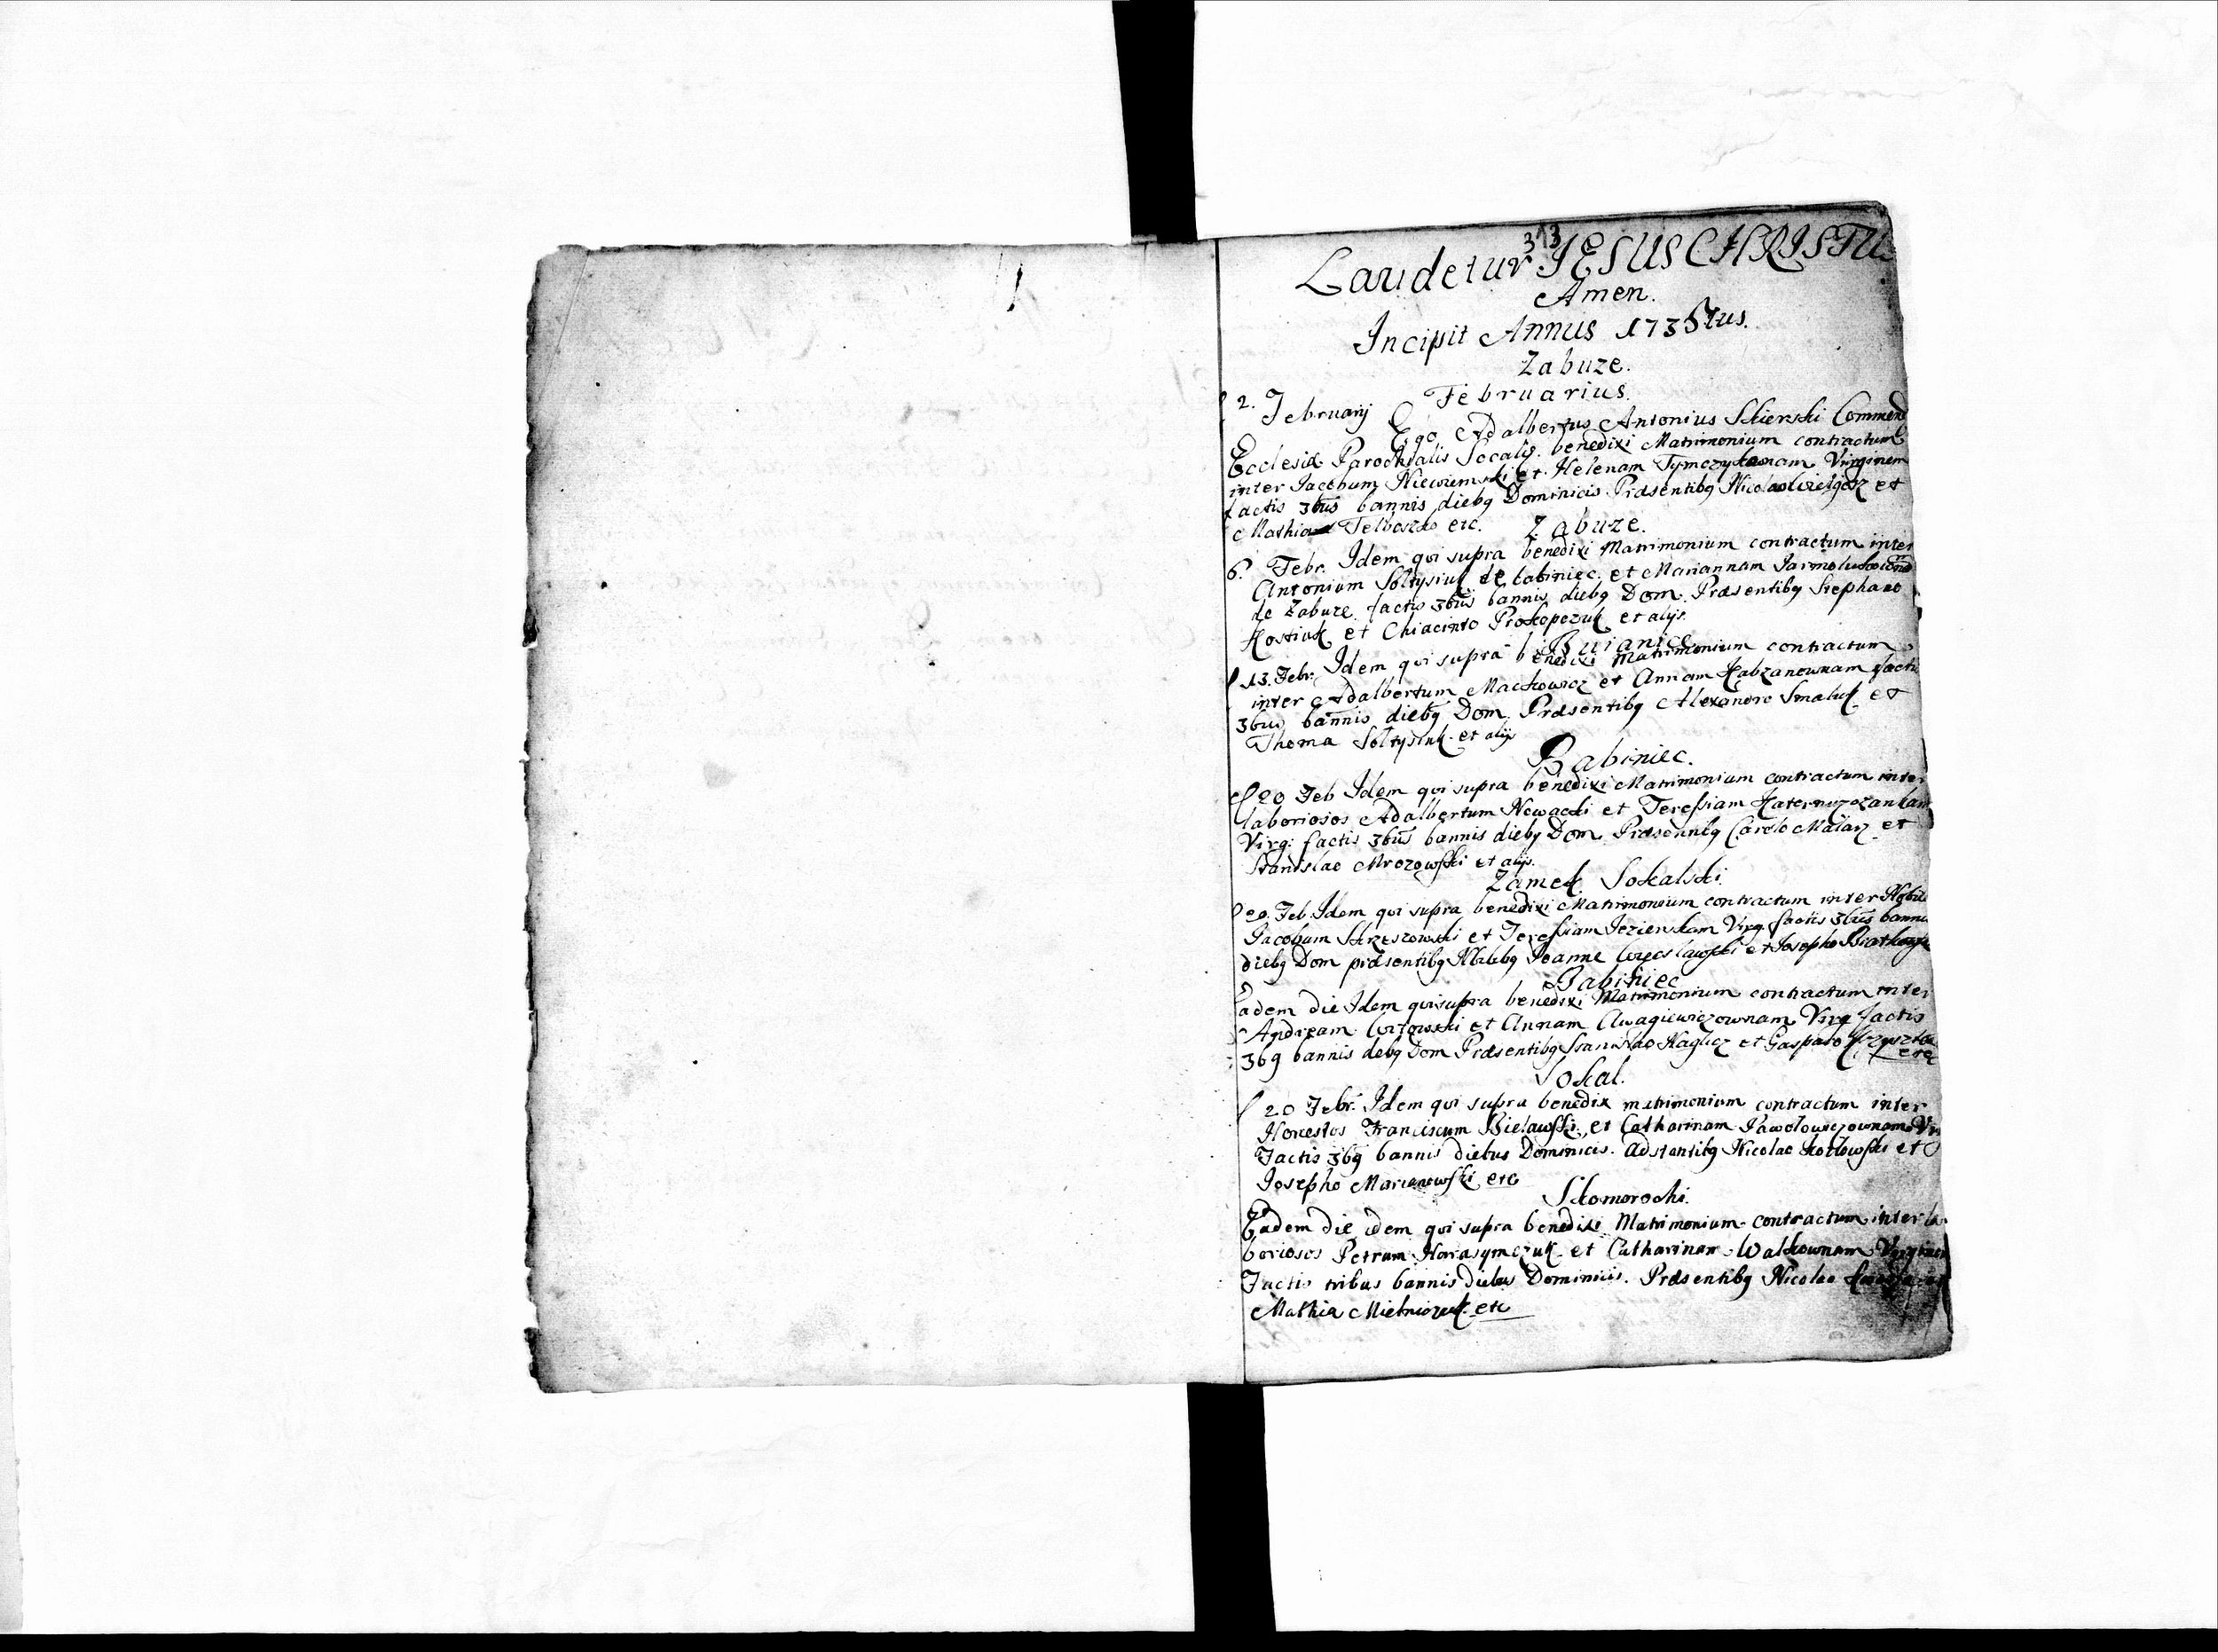 313
Laudetur JESUS CHRISTUS
Amen.
Incipit Annus 1735tus.
Zabuze.
Februarius.
2. Februarij Ego Adalbertus Antonius Skierski Commend
Ecclesiæ Parochialis Socalis. benedixi Matrimonium contractum
inter Jacobum Niewiemski et Helenam Virginem
factis 3bus bannis diebq Dominicis Præsentibq Nicolao et
Mathia etc. Zabuze.
6. Febr. Idem qui supra benedixi Matrimonium contractum inter
Antonium Soltysiuk de babiniec. et Mariannam
de Zabuze factis 3bus bannis diebq Dom. Præsentibq Stephano
Kostiuk et Chiacinto Prokopczuk et alijs.
Buianice
13. Febr. Idem qui supra benedixi Matrimonium contractum
inter Adalbertum Mackowicz et Annam Habzanownam factis
3bus bannis diebq Dom. Præsentibq Alexandro Smaluk et
Thoma Soltysiuk et alijs
Babiniec.
20 Feb Idem qui supra benedixi Matrimonium contractum inter
laboriosos Adalbertum Nowacki et Teressiam
Virg: factis 3bus bannis diebq Dom. Præsentibq Carolo Malarz et
Stanislao Mrozowski et alijs.
Zamek Sokalski.
20. Feb. Idem qui supra benedixi Matrimonium contractum inter Nobiles
Jacobum Skrzeszowski et Teressiam Jezierskam Virg. factis 3bus bannis
diebq Dom præsentibq Nobilibq Joanne et Josepho
Babiniec
Eadem die Idem qui supra benedixi Matrimonium contractum inter
Andream et Annam Awagiewiczownam Virg factis
3bq bannis debq Dom Præsentibq Stanislao Haglicz et Gasparo
etc
Sokal.
20 Febr. Idem qui supra benedix matrimonium contractum inter
Honestos Franciscum Bielawski, et Catharinam Pawolowiczownam
Factis 3bq bannis diebus Dominicis. Adstantibq Nicolao Kozlowski et
Josepho Marianowski etc
Skomorochi.
Eadem die idem qui supra benedixi Matrimonium contractum inter la
boriosos Petrum Harasymczuk et Catharinam Walkownam Virginem
Factis tribus bannis diebus Dominicis. Præsentibq Nicolao
Mathia Mielniczuk etc